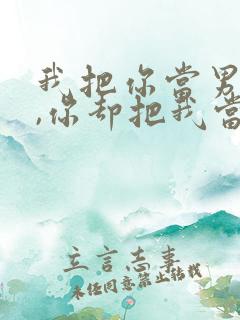 我把你當男
,你却把我當
立言志事
未经同意禁止转载